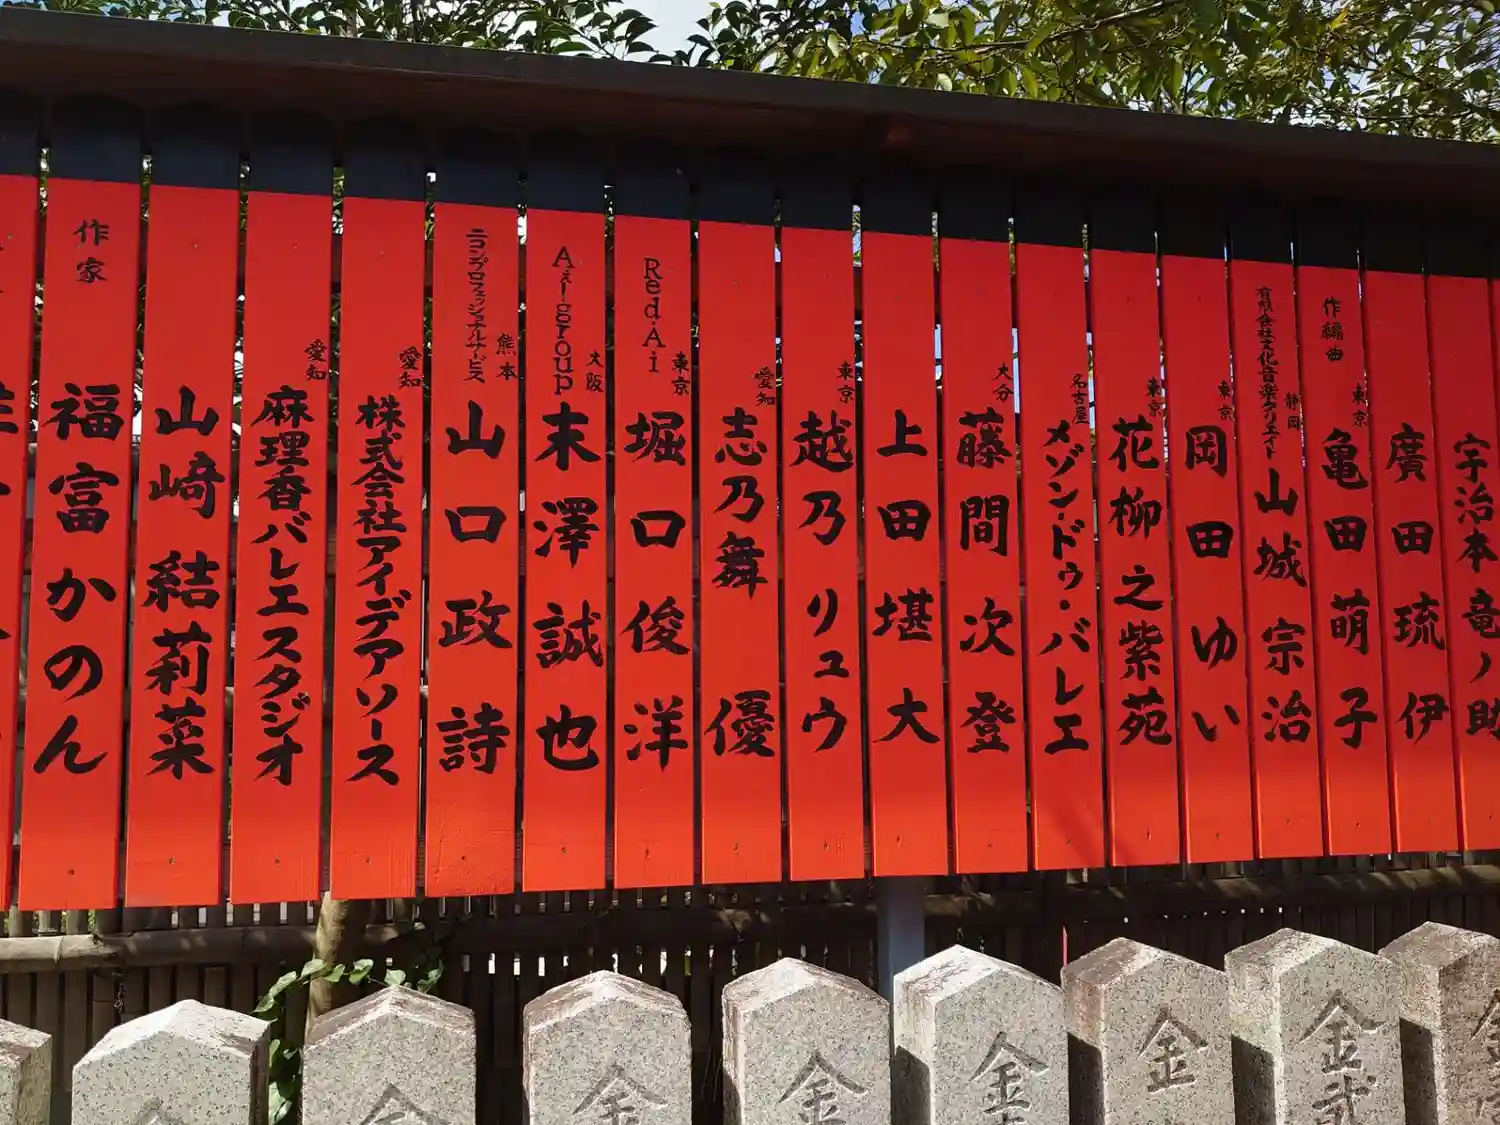 宇治本 竜ノ助
廣田 琉伊
作編曲
東京
亀田 萌子
有限会社文化音楽クリエイト
静岡
山城 宗治
東京
岡田 ゆい
東京
花柳 之紫苑
名古屋
メゾン・ドゥ・バレエ
大分
藤間 次登
上田 堪大
東京
越乃 リュウ
愛知
志乃舞 優
RedAi
東京
堀口 俊洋
Ai-group
大阪
末澤 誠也
ニコンプロフェッショナルサービス
熊本
山口 政詩
愛知
株式会社アイデアソース
愛知
麻理香バレエスタジオ
山﨑 結莉菜
作家
福富 かのん
金
金
金
金
金
金
金